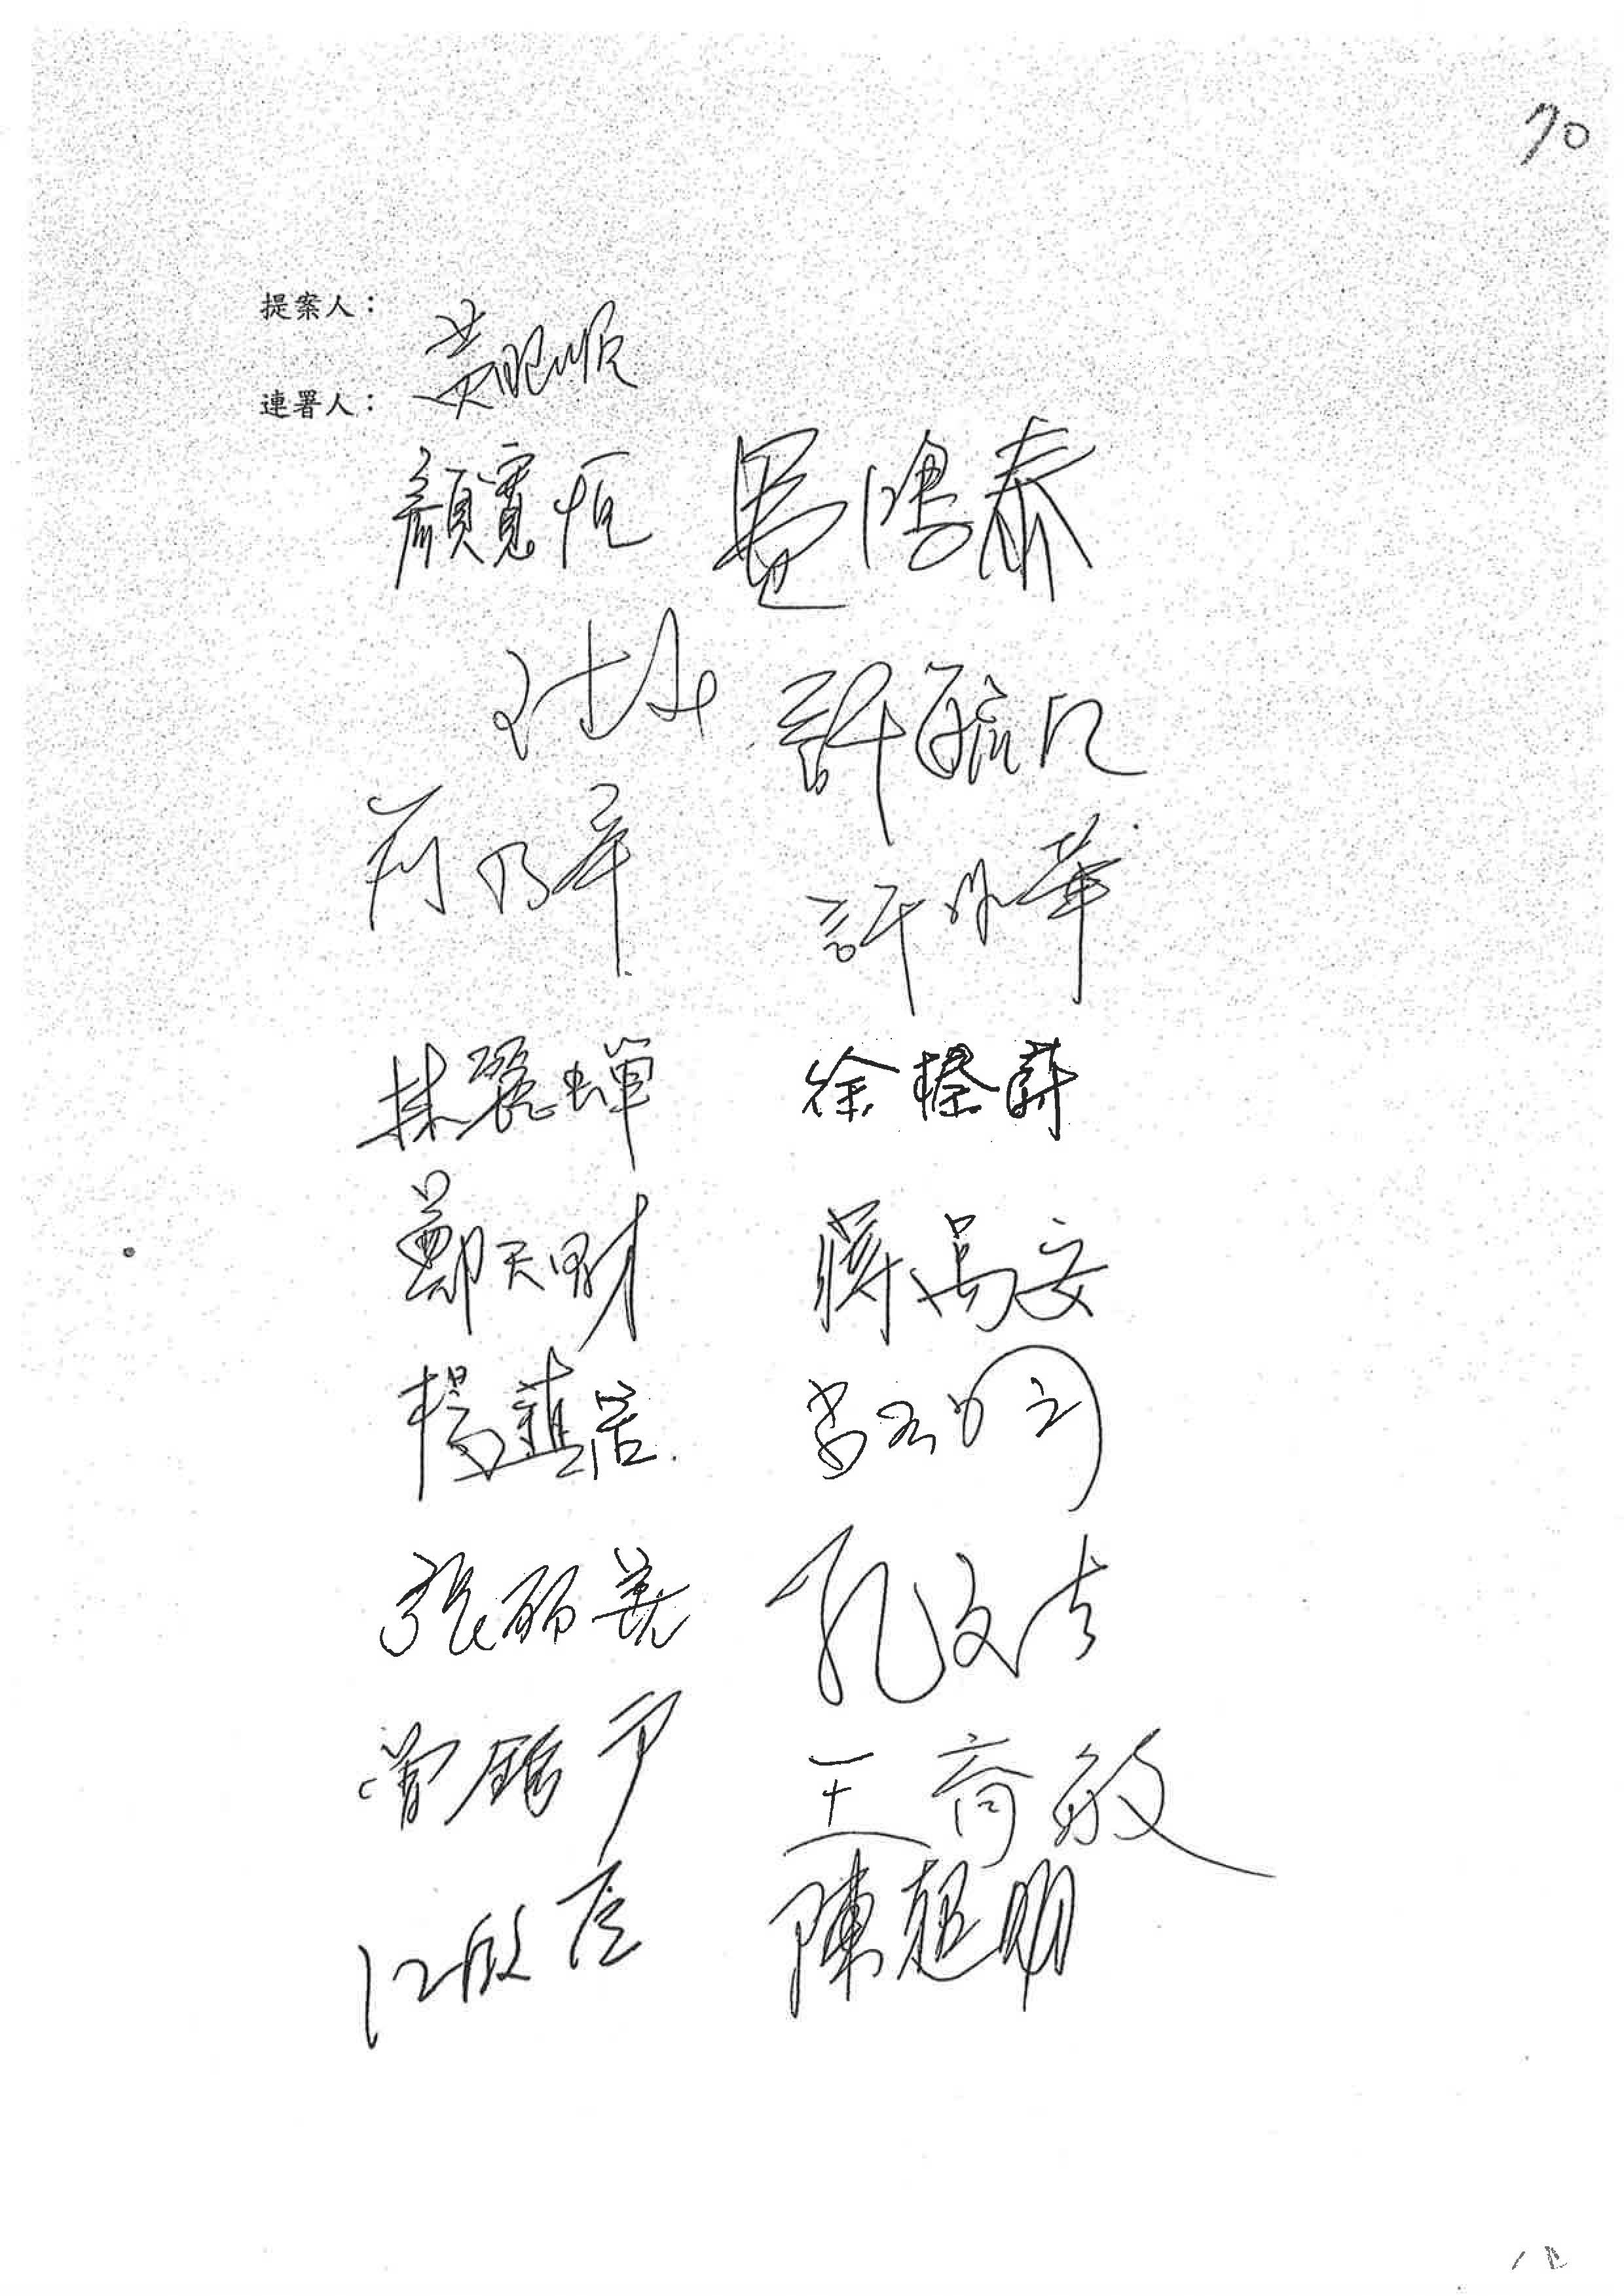 70
提案人：
黃昭順
連署人：
顏寬恒 費鴻泰
許毓仁
蔣乃辛 許淑華
林麗蟬 徐榛蔚
鄭天財 蔣萬安
楊鎮浯
張麗善 孔文吉
曾銘宗 王育敏
江啟臣 陳超明